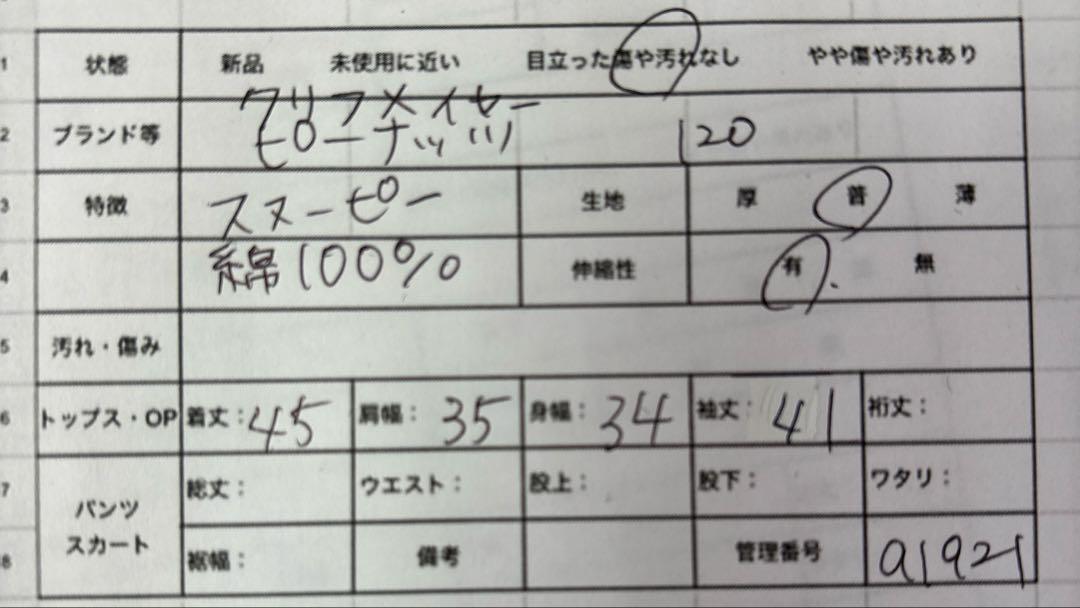 1 状態 新品 未使用に近い 目立った傷や汚れなし やや傷や汚れあり
クリフメイヤー
2 ブランド等 ピーナッツ 120
3 特徴 スヌーピー 生地 厚 普 薄
4 綿100% 伸縮性 有 無
5 汚れ・傷み
6 トップス・OP 着丈:45 肩幅:35 身幅:34 袖丈:41 裄丈:
7 パンツ 総丈: ウエスト: 股上: 股下: ワタリ:
8 スカート 裾幅: 備考 管理番号 a1921